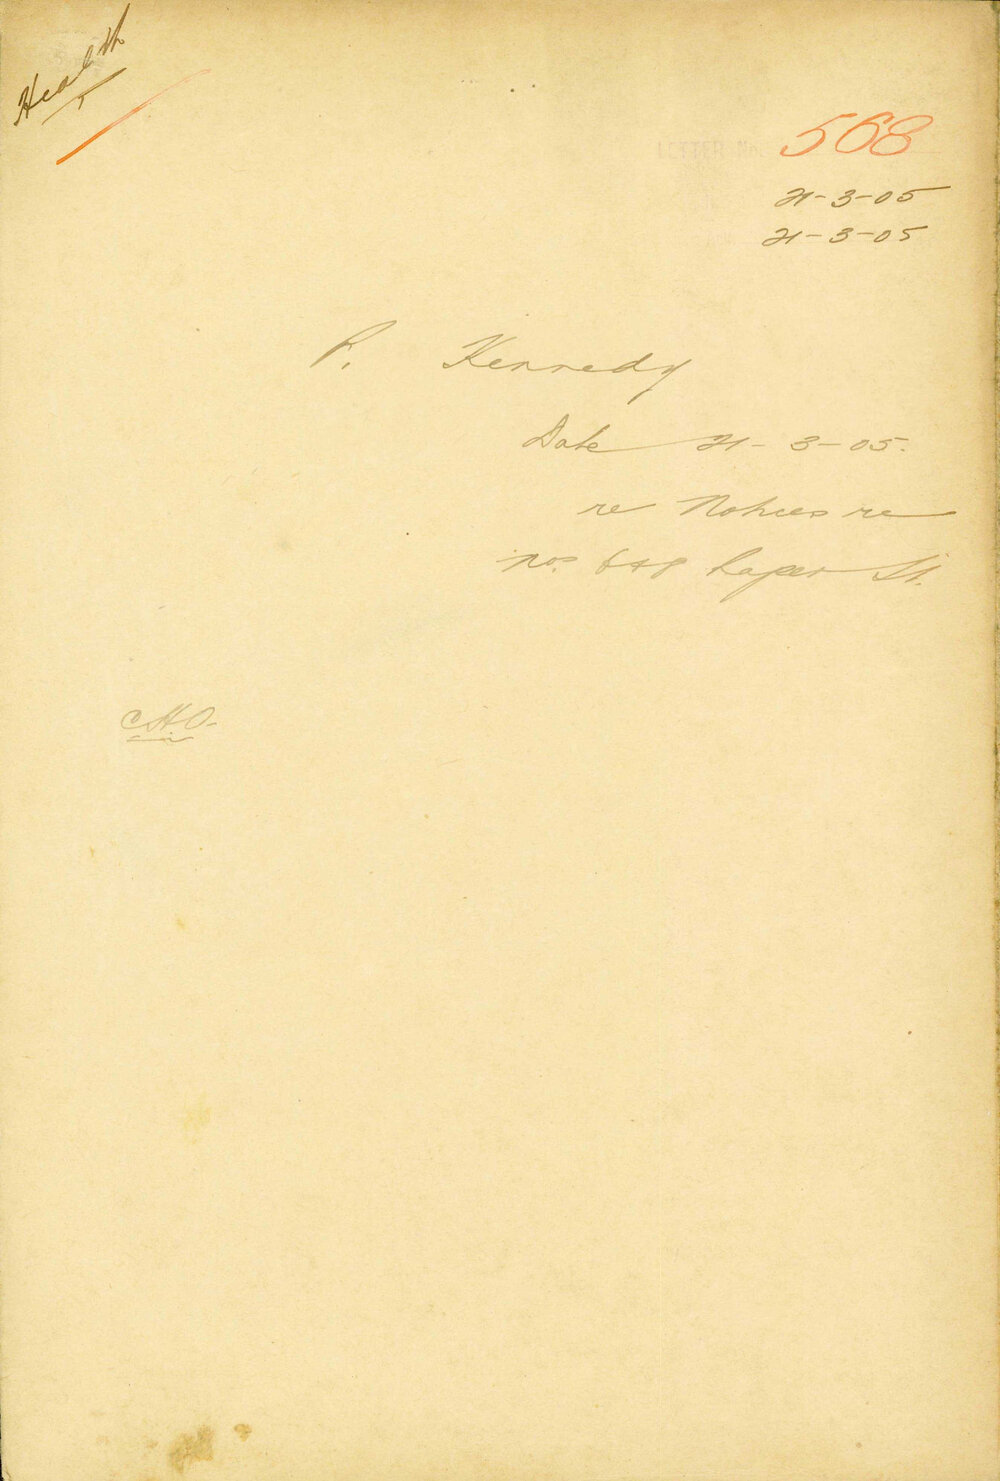 Health
LETTER No. 568
21-3-05
21-3-05
P. Kennedy
Date 21-3-05.
re Notices re
nos. 6+8 Raper St.
CHO